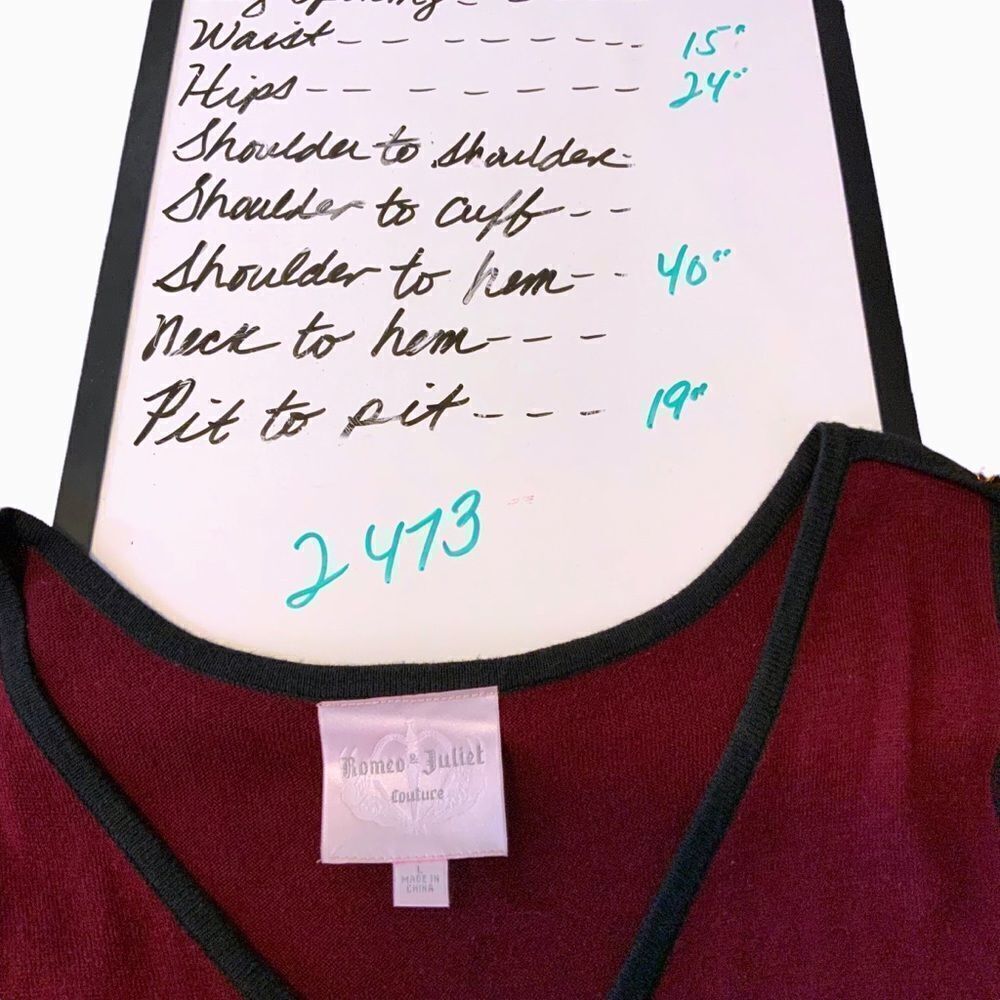 Waist-- ------ 15"
Hips-- - ----- 24"
Shoulder to shoulder-
Shoulder to cuff--
Shoulder to hem-- 40"
Neck to hem---
Pit to pit--- 19"
2473
Romeo & Juliet
Couture
L
MADE IN
CHINA